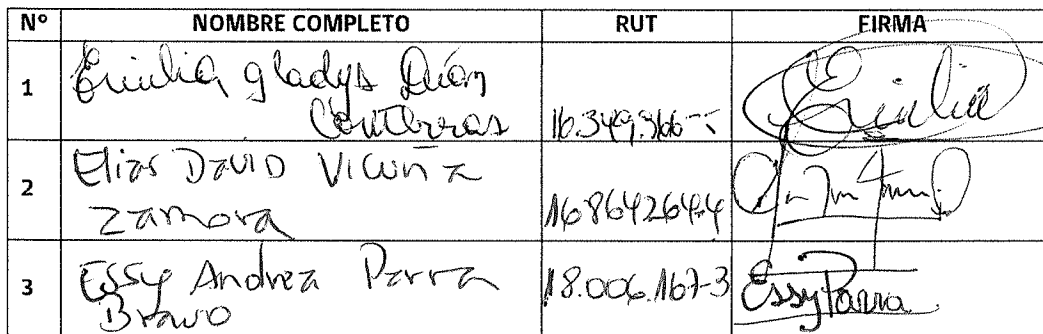 Nº NOMBRE COMPLETO RUT FIRMA
1 Emilia gladys
Contreras 16.349.366- Emilia
2 Elias DAVID VICUÑA
Zamora 16864264-4
3 Essy Andrea Parra
Bravo 18.006.167-3 Essy Parra